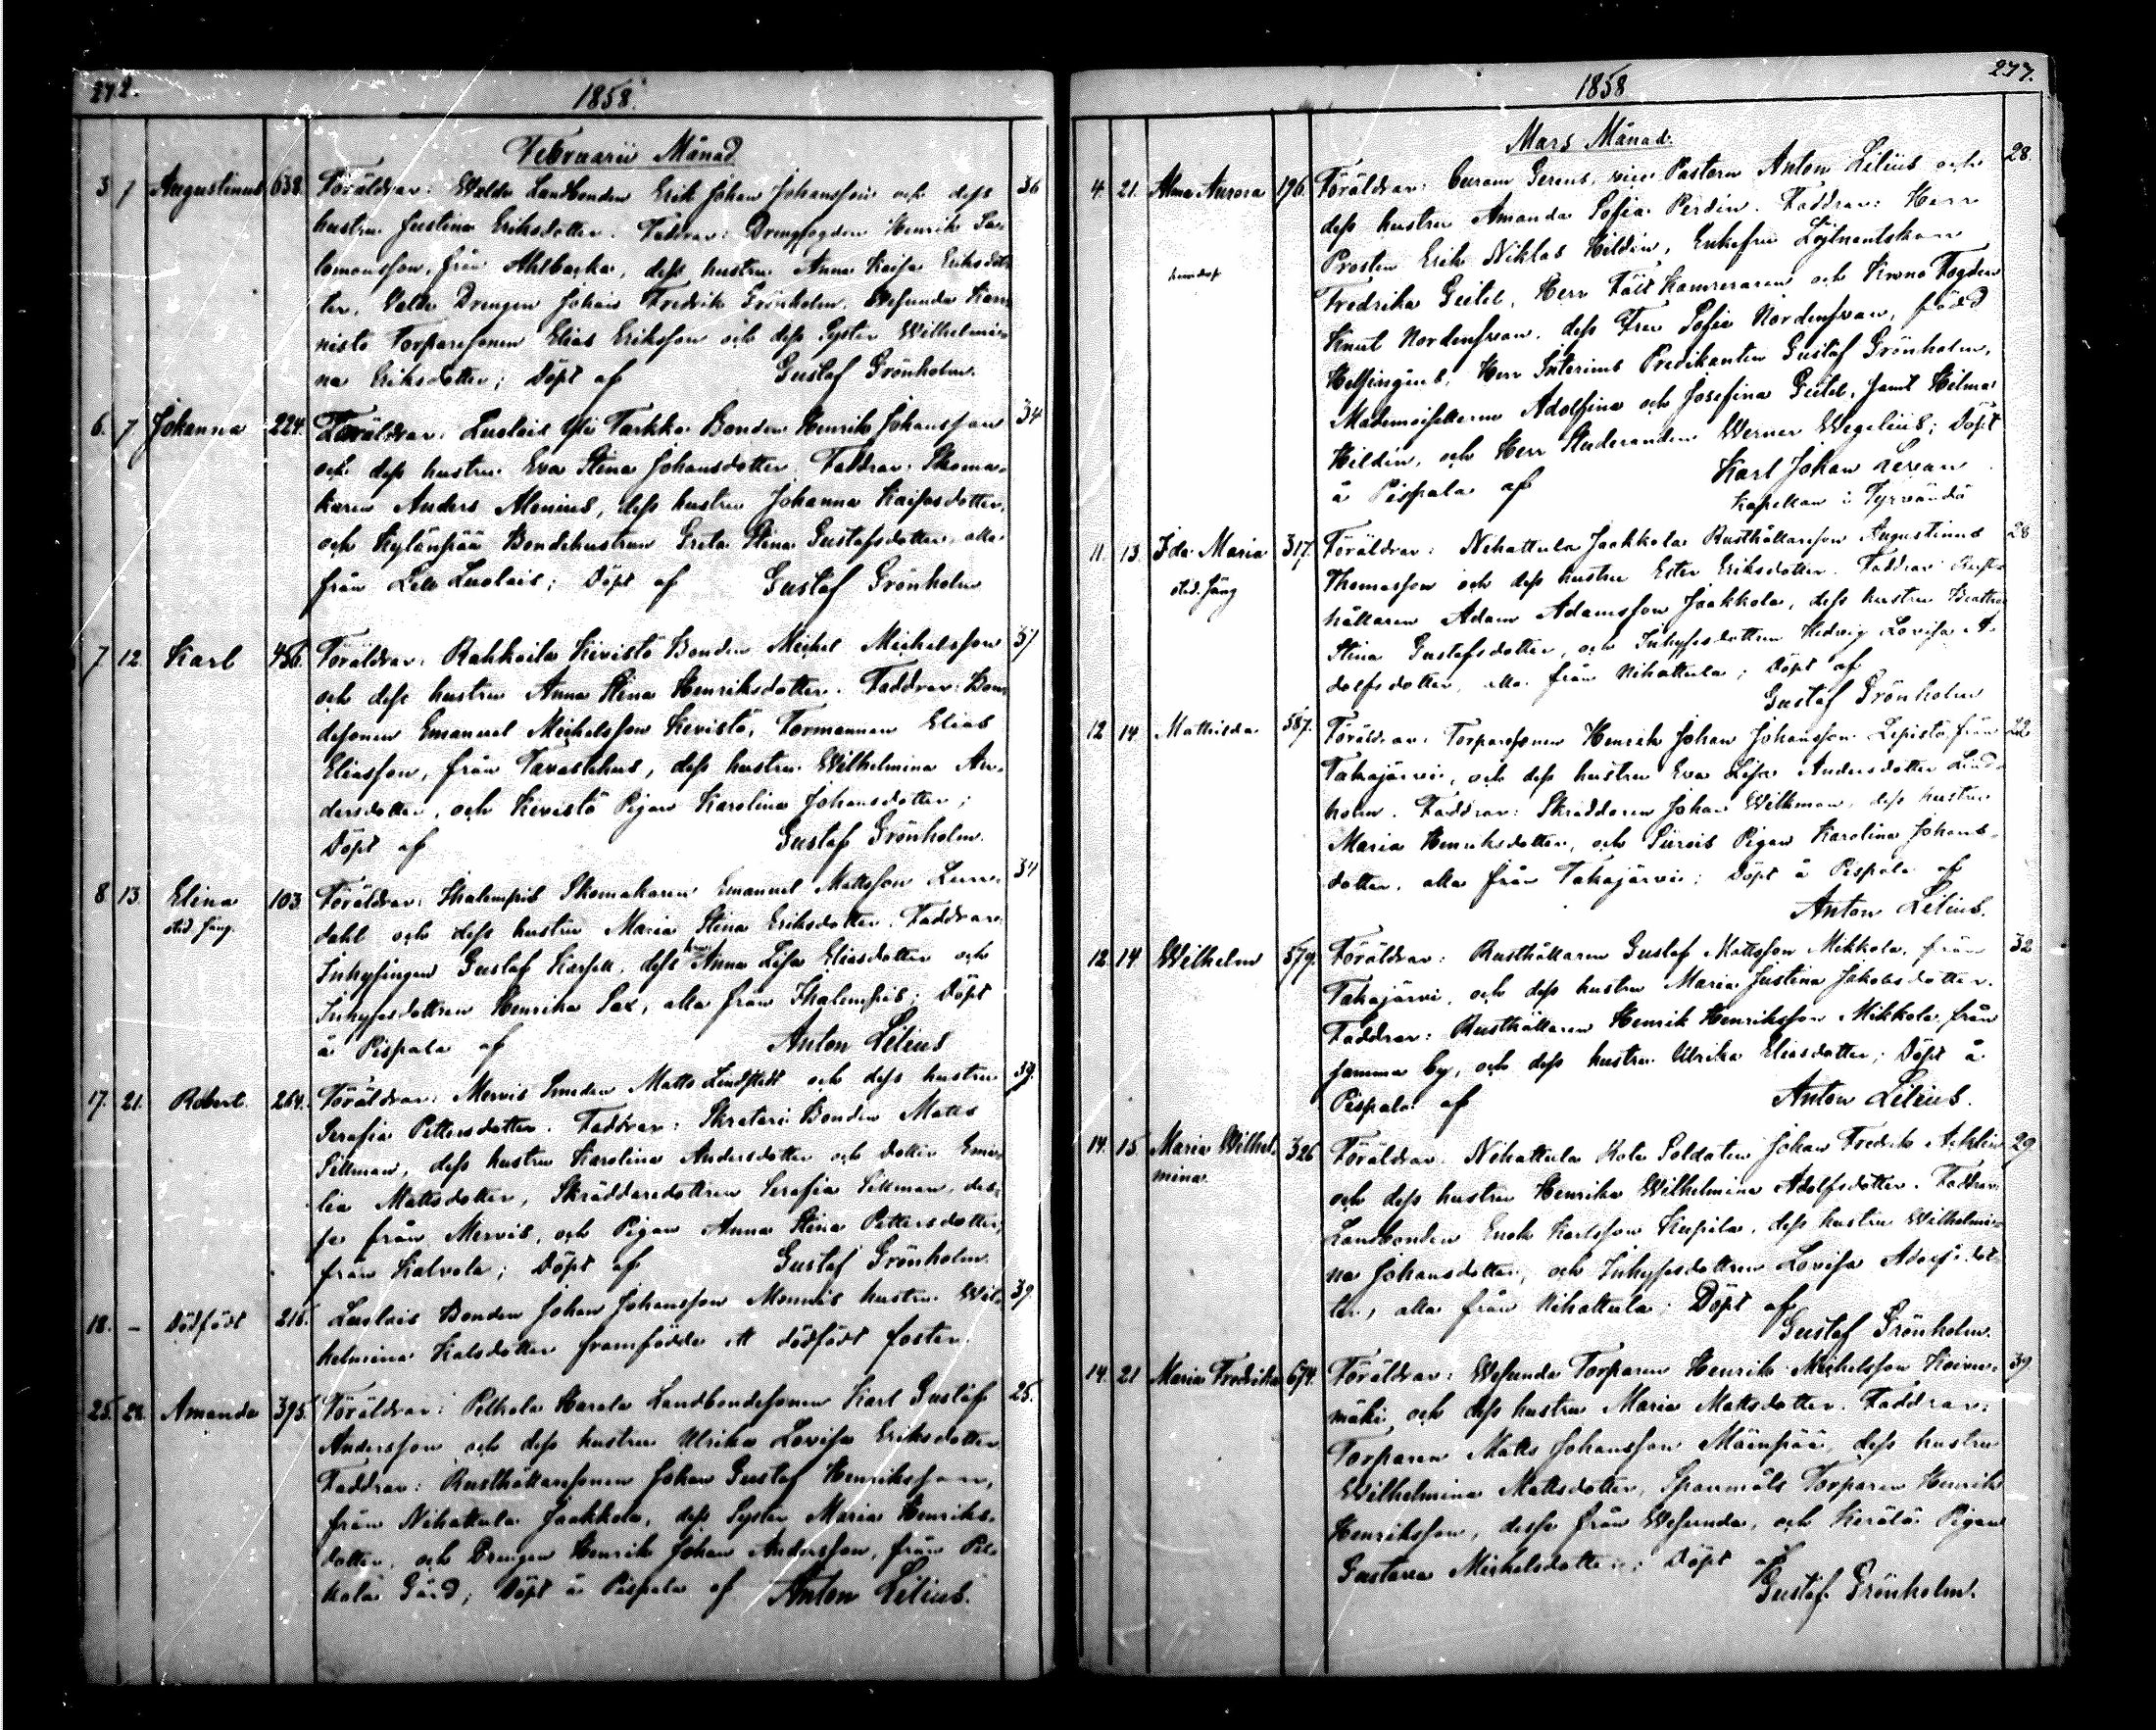 272.
1858.
Februarii Månad
3 7 Augustinus 638. Föräldrar: Walda Landbonden Erik Johan Johansson och dess 36
hustru Justina Eriksdotter. Faddrar: Drengfogden Henrik Sa-
lomonsson, från Ahlbacka, dess hustru Anna Kaisa Eriksdot-
ter, Drengen Johan Fredrik Grönholm, Wesunda Kan-
nisto Torparesonen Elias Eriksson och dess Syster Wilhelmi-
na Eriksdotter; Döpt af Gustaf Grönholm.
6. 7 Johanna 224. Föräldrar: Luolais Yli Tarkka Bonden Henrik Johansson 34
och dess hustru Eva Stina Johansdotter. Faddrar: Skoma-
karen Anders Alenius, dess hustru Johanna Kaisasdotter,
och Kylänpää Bondehustrun Greta Stina Gustafsdotter, alla
från Luolais; Döpt af Gustaf Grönholm
7 12. Karl 456. Föräldrar: Rahkoila Kivistö Bonden Michel Michelsson 37
och dess hustru Anna Stina Henriksdotter. Faddrar: Bon-
desonen Emanuel Michelsson Kevistö, Formannen Elias
Eliasson, från Tavastehus, dess hustru Wilhelmina An-
dersdotter, och Kevistö Pigan Karolina Johansdotter;
Döpt af Gustaf Grönholm.
8 13. Elina 103. Föräldrar: Ihalempis Skomakaren Emanuel Mattsson Lun- 34
oä. säng.
dahl och dess hustru Maria Stina Eriksdotter. Faddrar:
Inhysingen Gustaf Karsell, dess hu Anna Lisa Eliasdotter och
Inhysesdottren Henrika Sax, alla från Ihalempis; Döpt
å Pispala af Anton Lilius
17. 21. Robert. 264. Föräldrar: Mervis Smeden Matts Lindstedt och dess hustru 39.
Serafia Pettersdotter. Faddrar: Skretari Bonden Matts
Sillman, dess hustru Karolina Andersdotter och dotter Emi-
lia Mattsdotter, Skräddaredottren Serafia Sillman, des-
se från Mervis, och Pigan Anna Stina Pettersdotter,
från Kalvola; Döpt af Gustaf Grönholm.
18. – Dödfödt 216. Luolais Bonden Johan Johansson Monnis hustru Wil- 39
helmina Kalsdotter framfödde ett dödfödt foster.
25. 28. Amanda 395. Föräldrar: Pelkola Harala Landbondesonen Karl Gustaf 25.
Andersson och dess hustru Ulrika Lovisa Eriksdotter
Faddrar: Rusthållaresonen Johan Gustaf Henriksson,
från Nihattula Jaakkola, dess Syster Maria Henriks-
dotter, och Drengen Henrik Johan Andersson, från Pel-
kola Gård; Döpt å Pispala af Anton Lilius.
277.
1858
Mars Månad.
4. 21. Alma Aurora 196. Föräldrar: Curam Gerens, vice Pastorn Anton Lilius och 28.
dess hustru Amanda Sofia Perdén. Faddrar: Herr
Prosten Erik Niklas Hildén, Enkefru Löjtnantskan
hemdop
Fredrika Geitel, Herr Fält Kamreraren och Krono Fogden
Knut Nordensvan, dess Fru Sofia Nordensvan, född
Helsingius, Herr Interims Predikanten Gustaf Grönholm,
Mademoisellerne Adolfina och Josefina Geitel, samt Hilma
Hildén, och Herr Studeranden Werner Wegelius; Döpt
å Pispala af Karl Johan
Kapellan i Tyrvändö
11. 13. Ida Maria 317. Föräldrar: Nihattula Jaakkola Rusthållarson Augustinus 28
Thomasson och dess hustru Ester Eriksdotter. Faddrar: Rust-
oä. säng
hållaren Adam Adamsson Jaakkola, dess hustru Beatha
Stina Gustafsdotter, och Inhysesdottren Hedvig Lovisa A-
dolfsdotter, alla från Nihattula; Döpt af
Gustaf Grönholm
12 14. Mathilda 587. Föräldrar: Torparesonen Henrik Johan Johansson Lepistö, från 22
Takajärvi, och dess hustru Eva Lisa Andersdotter Lind-
holm. Faddrar: Skräddaren Johan Wilkman, dess hustru
Maria Henriksdotter, och Pigan Karolina Johans-
dotter, alla från Takajärvi; Döpt å Pispala af
Anton Lilius.
12. 14. Wilhelm 579. Föräldrar: Rusthållaren Gustaf Mattsson Mikkola, från 32
Takajärvi, och dess hustru Maria Justina Jakobsdotter.
Faddrar: Rusthållaren Henrik Henriksson Mikkola från
samma by, och dess hustru Ulrika Eliasdotter; Döpt å
Pispala af Anton Lilius.
14. 15 Maria Wilhel- 326 Föräldrar: Nihattula Rote Soldaten Johan Fredrik Achlin 29
mina
och dess hustru Henrika Wilhelmina Adolfsdotter. Faddrar:
Landbonden Enok Karlsson Kupila, dess hustru Wilhelmi-
na Johansdotter, och Inhysesdottren Lovisa Adolfsdot-
ter, alla från Nihattula; Döpt af
Gustaf Grönholm.
14. 21 Maria Fredrika 674. Föräldrar: Wesunda Torparen Henrik Michelsson Koivu- 39
mäki och dess hustru Maria Mattsdotter. Faddrar:
Torparen Matts Johansson Mäenpää, dess hustru
Wilhelmina Mattsdotter, Spanmåls Torparen Henrik
Henriksson, desse från Wesunda, och Kerälä Pigan
Gustava Michelsdotter; Döpt af
Gustaf Grönholm.